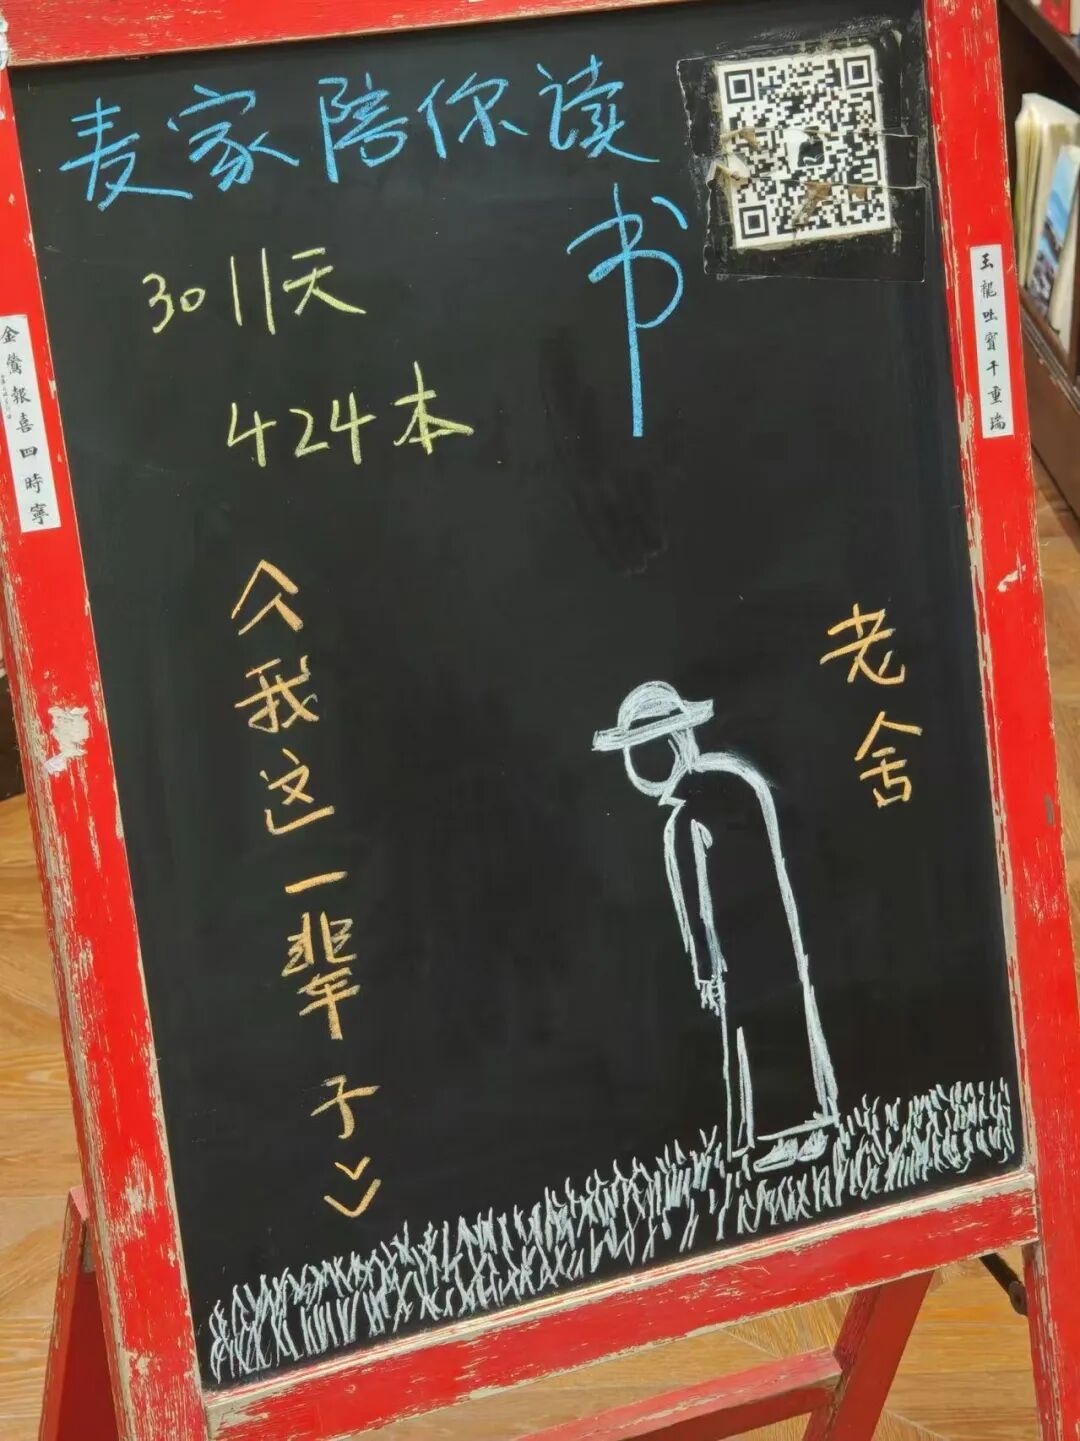 麦家陪你读书
3011天
424本
《我这一辈子》
老舍
金鶯報喜四時寧
玉龍吐寶千重瑞